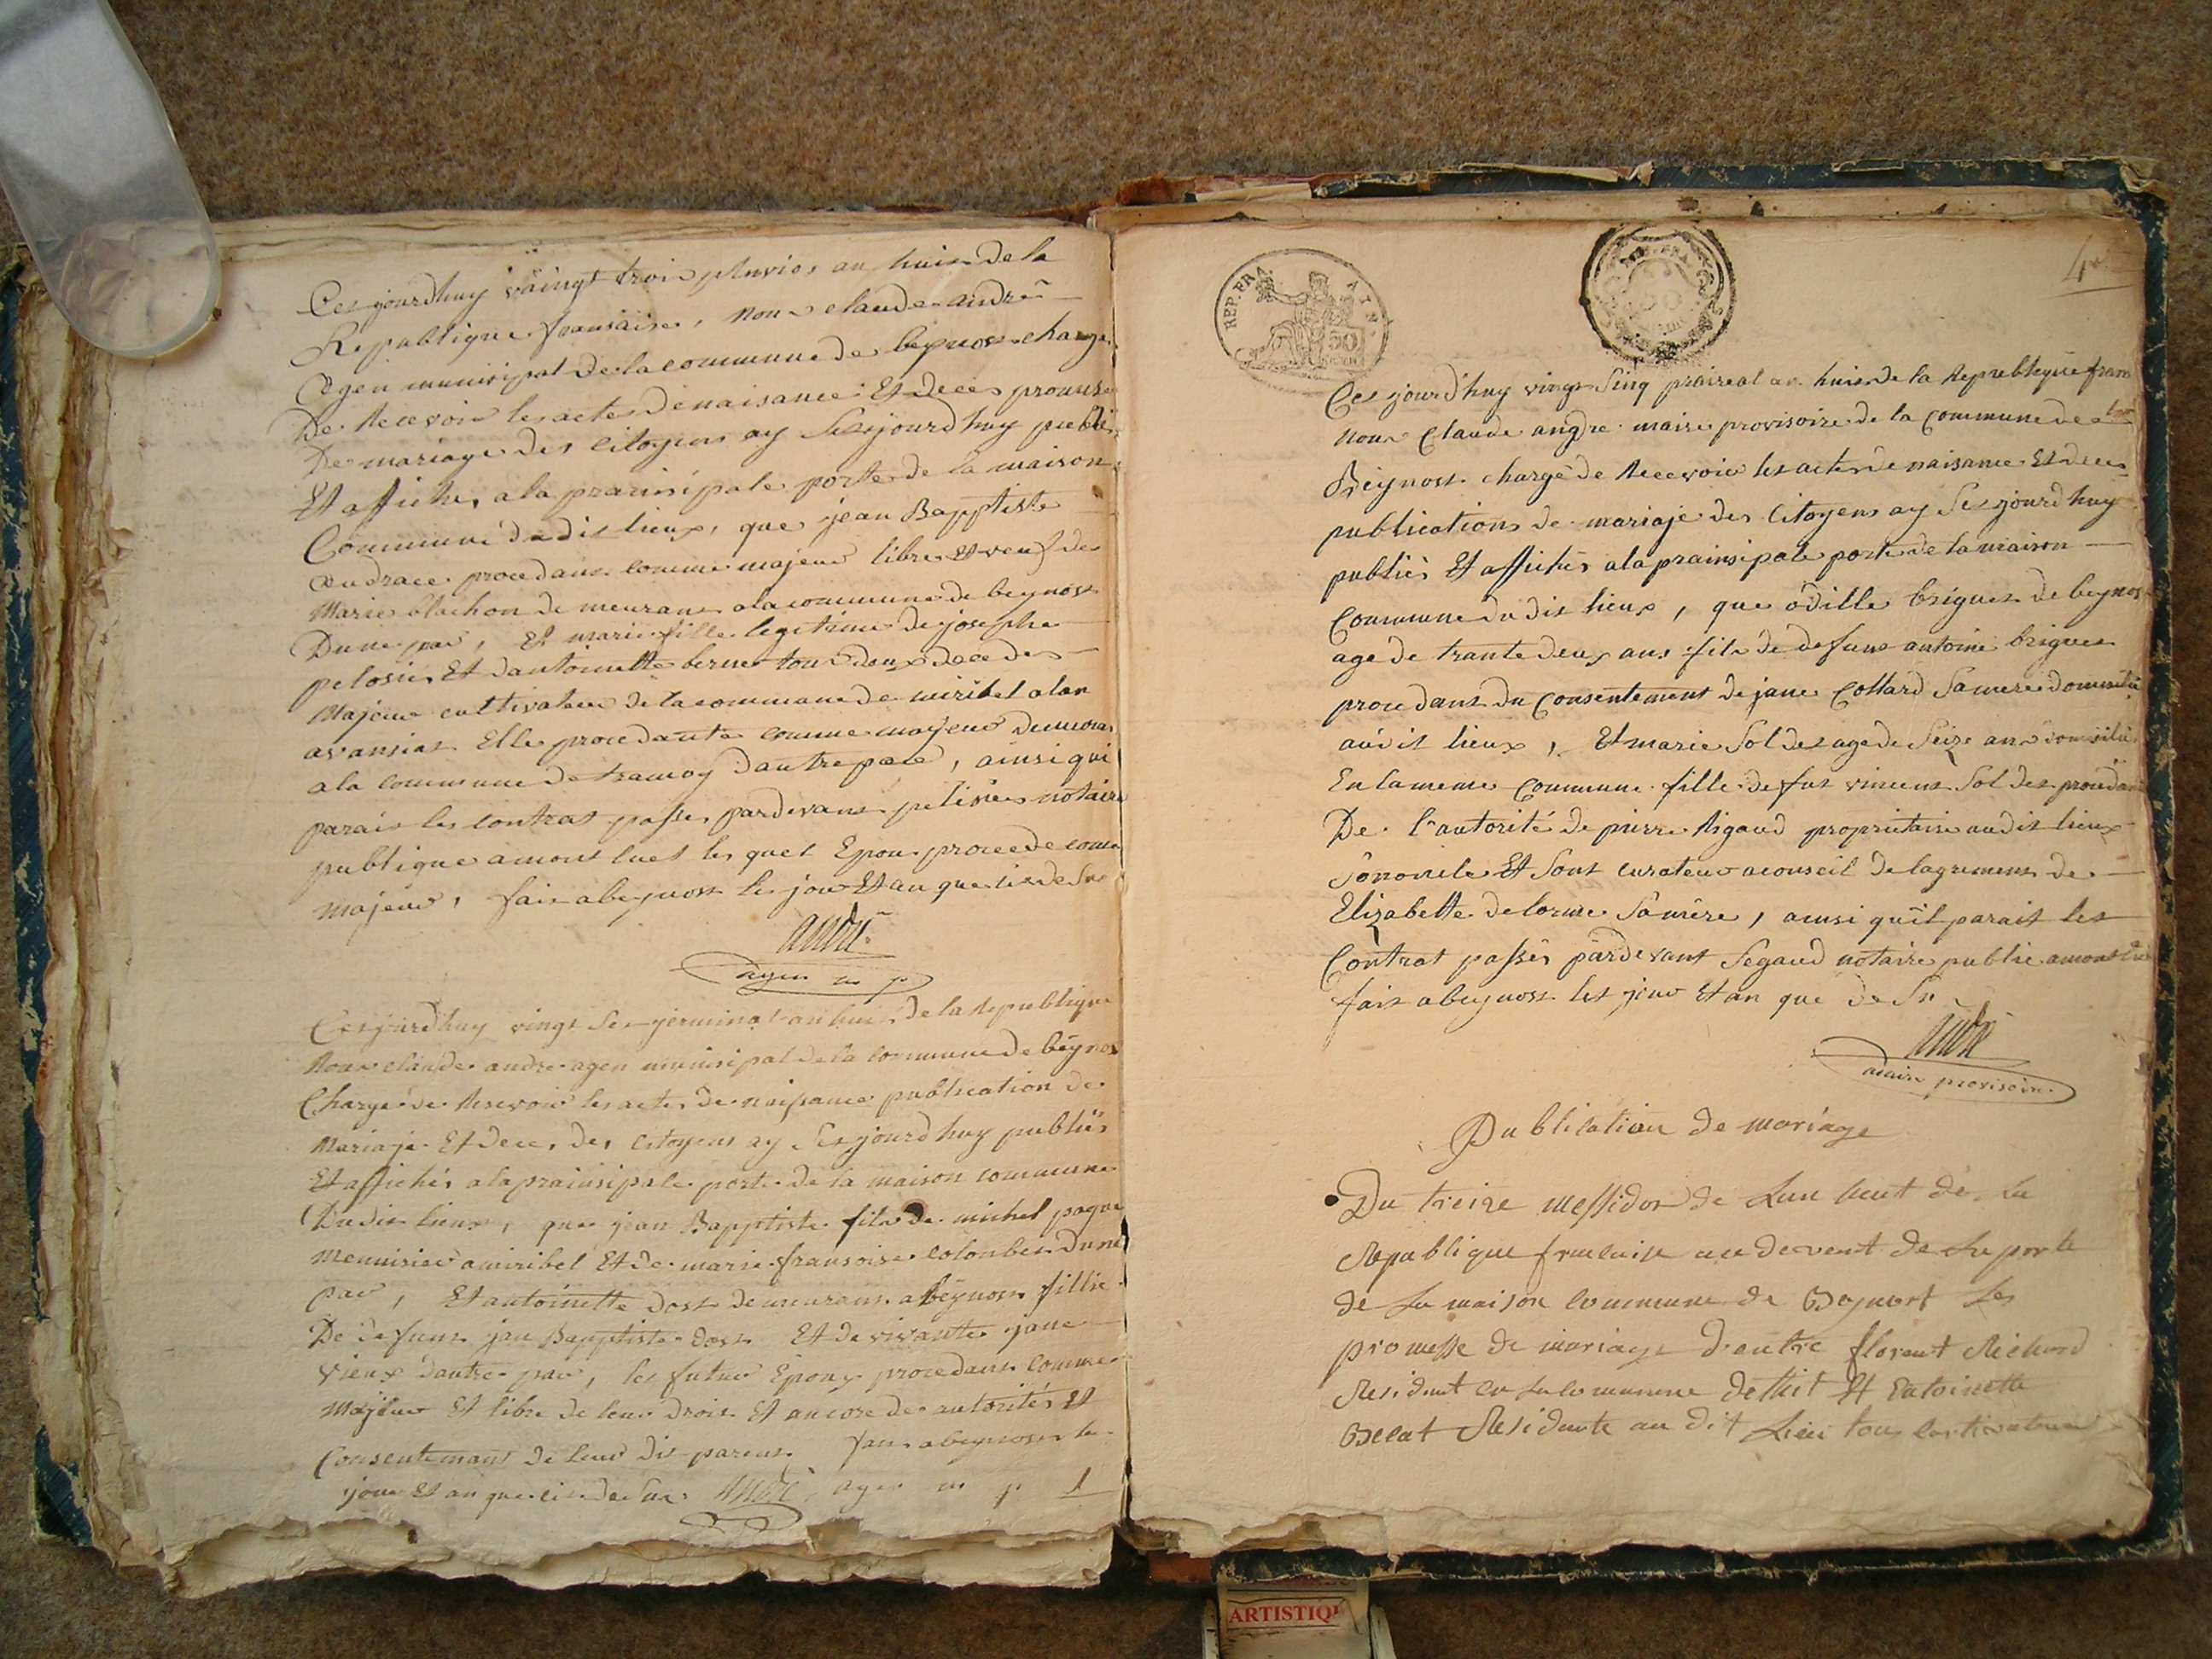 Cesjourdhuy vaingt trois pluvios an huit de la
Republique fransaise, nous claude andre
agen municipal de la commune de beynost charge
De Recevoir les actes de naisance Et deces promese
De mariage des citoyens ay Sesjourdhuy publiés
Et affiche, a la prainsipale porte de la maison
Commune du dit lieux, que jean Bapptiste
audrace procedant comme majeur libre et veuf de
Marie blachon demeurant a la commune de beynost
Dune par, Et marie fille legitime de josephe
pelosier Et dantoinette bernet tout deux decedes
Majeur cultivateur de la commune de miribel
Elle procedante comme majeur demeurant
a la commune de tramoy dautre part, ainsi qui
parait les contrat passes pardevant notaire
publique a mont luel les quel Epoux procede comme
majeur, fait a beynost le jour Et an que
andré
agen m p
Cesjourdhuy vingt Set germinal an huit de la Republique
Nous claude andre agen municipal de la commune de beynost
Chargé de Resevoir les actes de naissance publication de
Mariaje Et deces des citoyens ay Sesjourdhuy publiés
Et affichés a la prainsipale porte de la maison commune
Dudit lieux, que jean Bapptiste fils de michel page
menuisier a miribel Et de marie fransoise colonbet dune
par, Et antoinette dost demeurant a beynost fillie
De defunt jan Bapptiste dost Et de vivante jane
vieux dautre par, les futur Epoux procedant comme
Majeur Et libre de leur droit Et ancore des autorités Et
Consentemant de leur dit parent fait a beynost le
jour Et an que andré agen m p 1
4e
REP. FRA.
50
Cesjourdhuy vingt Sinq praireal an huit de la Republique frans
nous Claude andre maire provisoire de la commune de
Beynost chargé de Recevoir les actes de naisance Et deces
publications de mariaje des Citoyens ay Sesjourdhuy
publiés Et affichés a la prainsipale porte de la maison
Commune du dit lieux, que odille brigues de beynost
age de trante deux ans fils de defunt antoine brigues
procedant du Consentement de jane Collard Samere domicilié
audit lieux, Et marie Sol des age de Seize ans domicilié
En la meme Commune fille de fut vincent Sol des procedant
De l'autorité de pierre Rigaud proprietaire audit lieux
Son oncle Et Sont curateur a conseil de lagrement de
Elizabette delorme Samère, ainsi qu'il parait les
Contrat passés pardevant Segaud notaire public a mont luel
fait a beynost les jour Et an que de Su
andré
maire provisoire
Publication de mariage
Du treize messidor de Lan huit de La
Republique francaise au devent de La porte
de La maison Commune de Beynost Les
promesse de mariage d'entre florent Richard
Resident en La Commune Et entoinette
Becat Residente au dit Lieu tous Cultivateur
ARTISTIQU